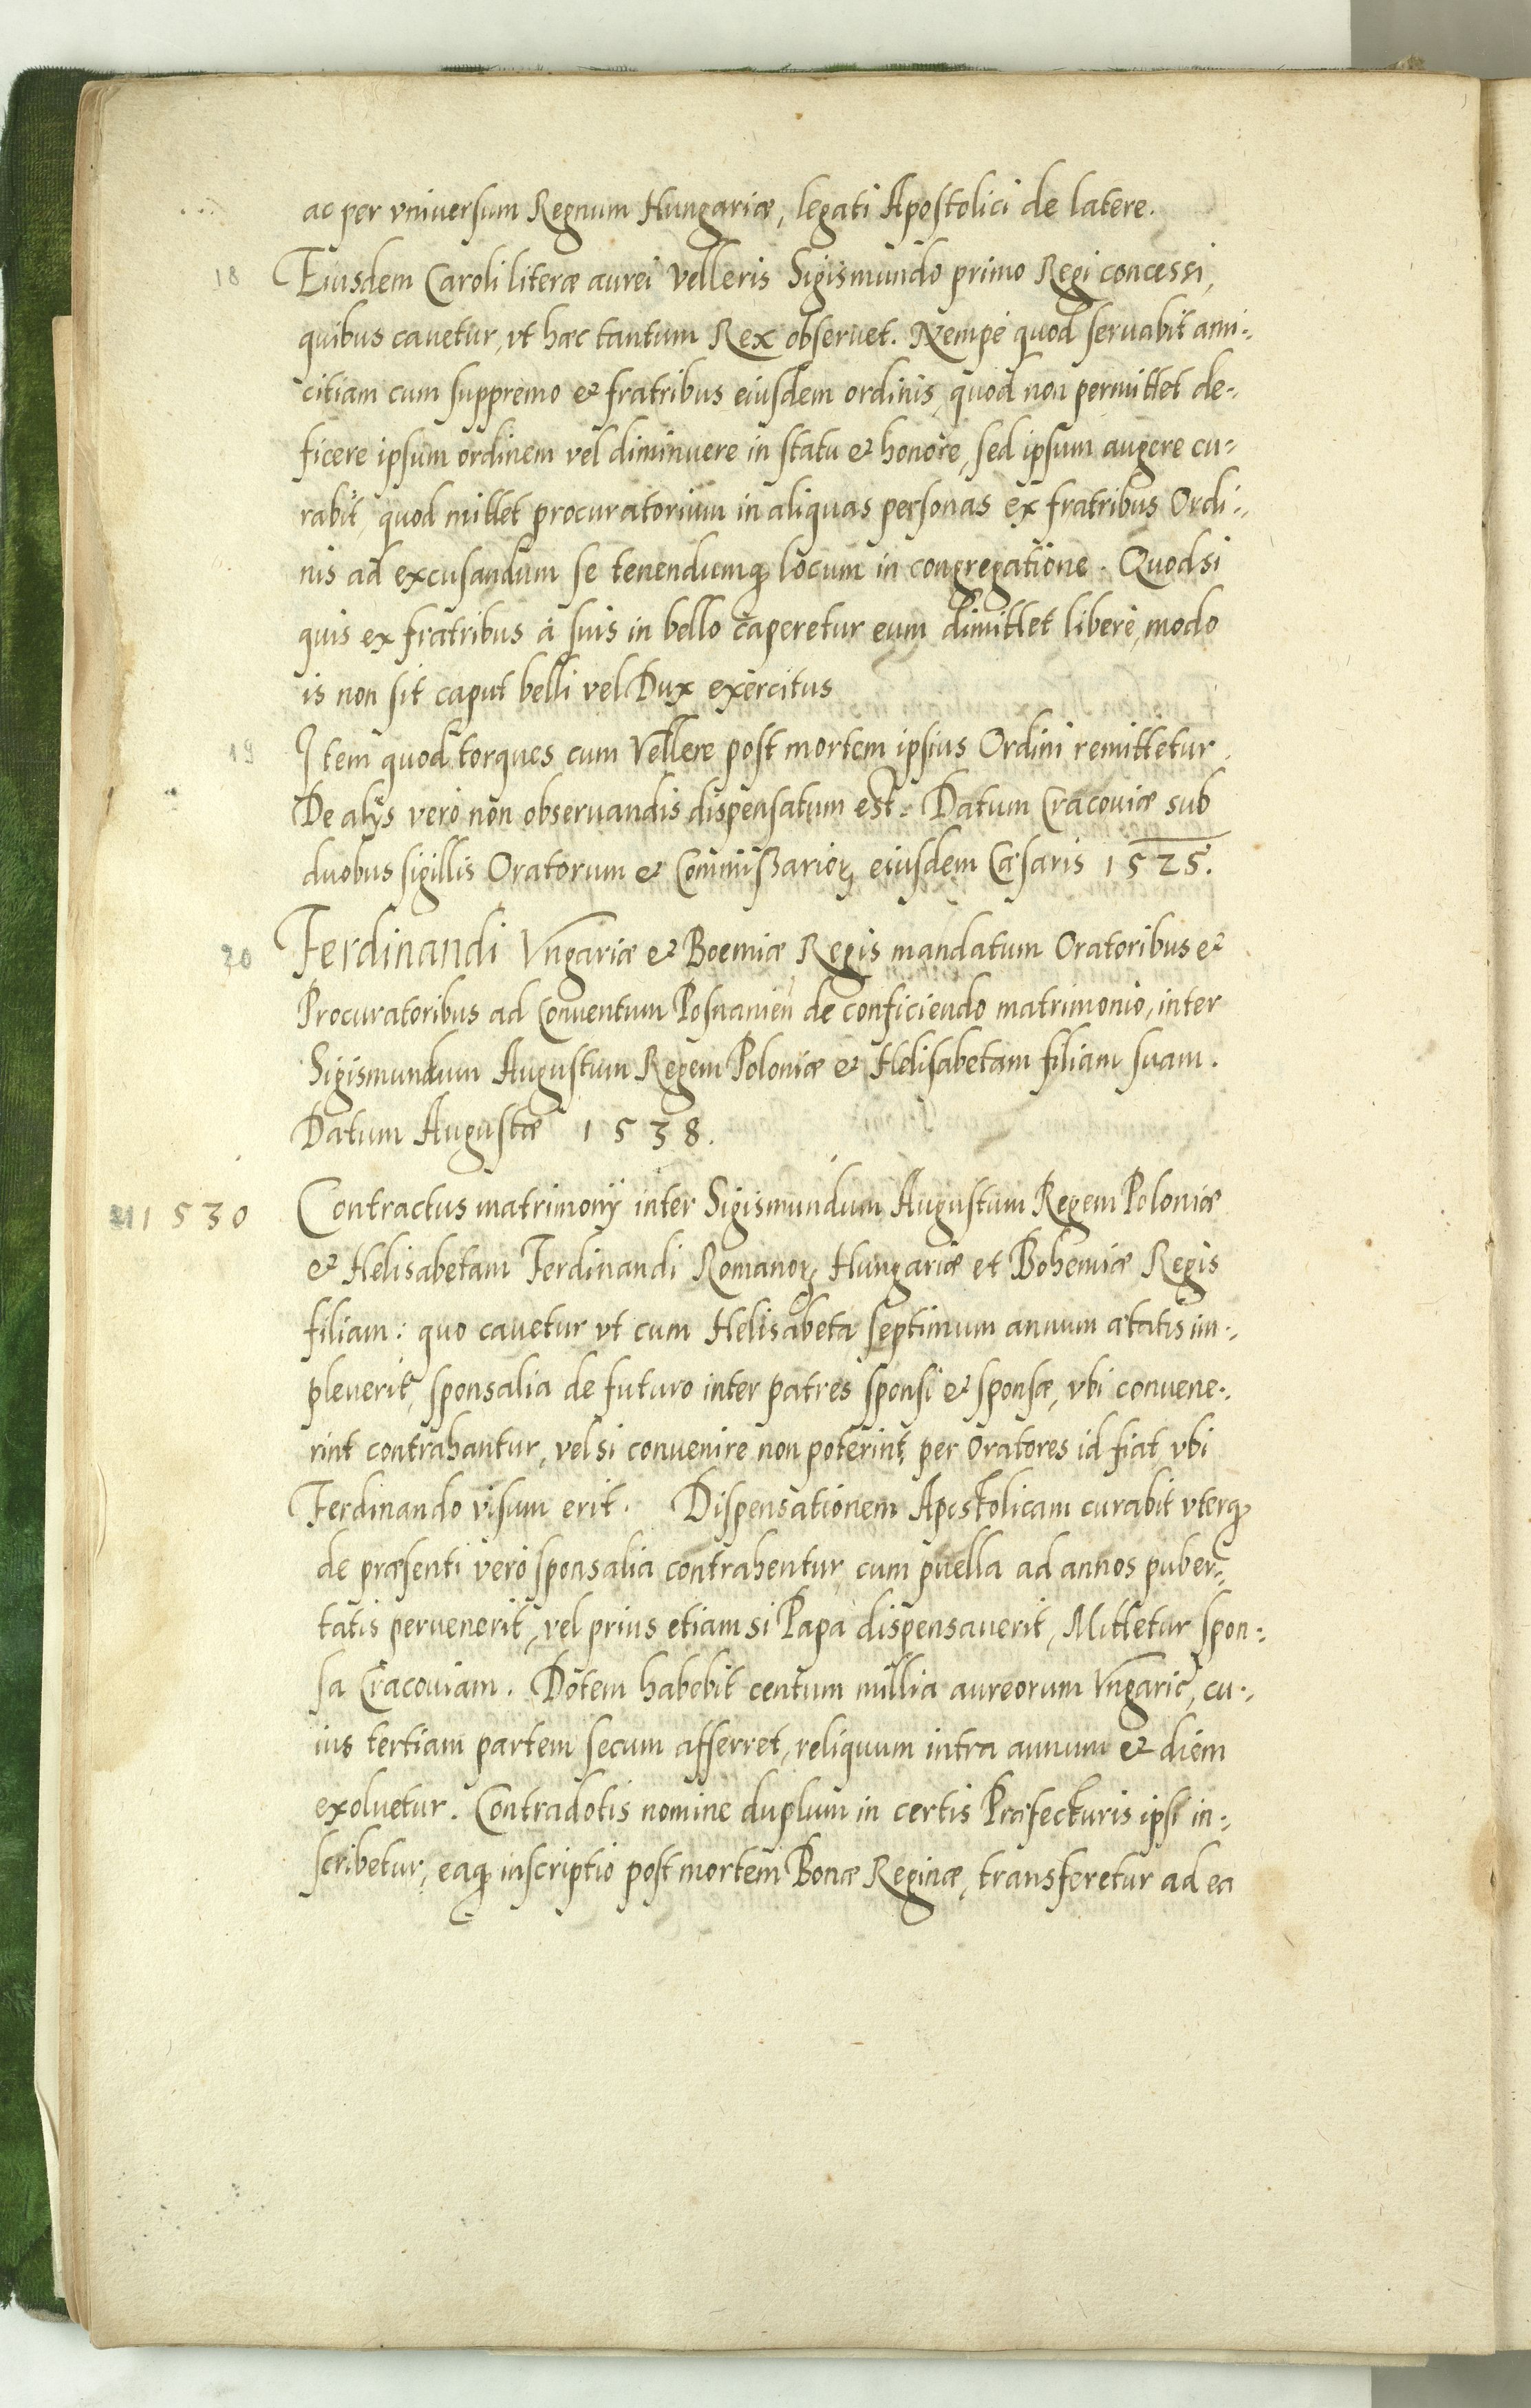 ac per vniuersum Regnum Hungariæ, legati Apostolici de latere.
18 Eiusdem Caroli literæ aurei Velleris Sigismundo primo Regi concessi,
quibus cauetur, vt hæc tantum Rex obseruet. Nempè quod seruabit ami-
citiam cum suppremo & fratribus eiusdem ordinis, quod non permittet de-
ficere ipsum ordinem vel diminuere in statu & honore, sed ipsum augere cu-
rabit, quod mittet procuratorium in aliquas personas ex fratribus Ordi-
nis ad excusandum se tenendumq locum in congregatione. Quodsi
quis ex fratribus à suis in bello caperetur eum dimittet liberè, modo
is non sit caput belli vel Dux exercitus
19 Item quod torques cum Vellere post mortem ipsius Ordini remittetur.
De alijs verò non obseruandis dispensatum est. Datum Cracouiæ sub
duobus sigillis Oratorum & Commißarioꝝ eiusdem Cæsaris 1525.
20 Ferdinandi Vngariæ & Boemiæ Regis mandatum Oratoribus &
Procuratoribus ad Conuentum Posnanien de conficiendo matrimonio, inter
Sigismundum Augustum Regem Poloniæ & Helisabetam filiam suam.
Datum Augustæ 1538.
21 1530 Contractus matrimonij inter Sigismundum Augustum Regem Poloniæ
& Helisabetam Ferdinandi Romanoꝝ Hungariæ et Bohemiæ Regis
filiam: quo cauetur vt cum Helisabeta septimum annum ætatis im-
pleuerit, sponsalia de futuro inter patres sponsi & sponsæ, vbi conuene-
rint contrahantur, vel si conuenire non poterint, per Oratores id fiat vbi
Ferdinando visum erit. Dispensationem Apostolicam curabit vterq
de præsenti verò sponsalia contrahentur, cum puella ad annos puber-
tatis peruenerit, vel prius etiam si Papa dispensauerit, Mittetur spon-
sa Cracouiam. Dotem habebit centum millia aureorum Vngaric, cu-
ius tertiam partem secum afferret, reliquum intra annum & diem
exoluetur. Contradotis nomine duplum in certis Præfecturis ipsi in-
scribetur, eaq inscriptio post mortem Bonæ Reginæ, transferetur ad ea